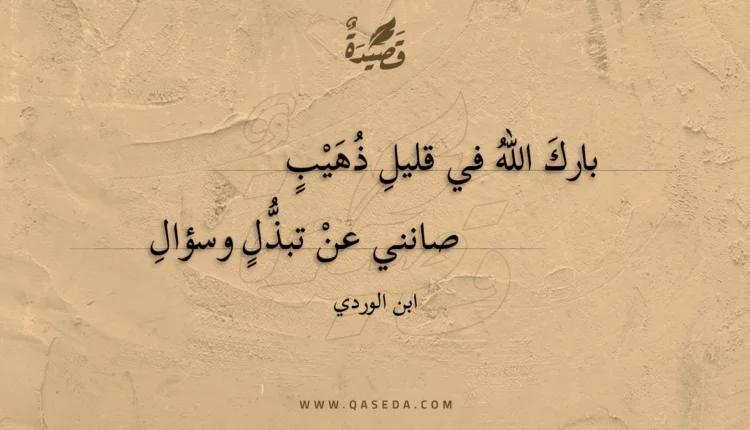 قَصِيْدَةٌ
باركَ اللهُ في قليلِ ذُهَيْبٍ
صانني عنْ تبذُّلٍ وسؤالِ
ابن الوردي
WWW.QASEDA.COM